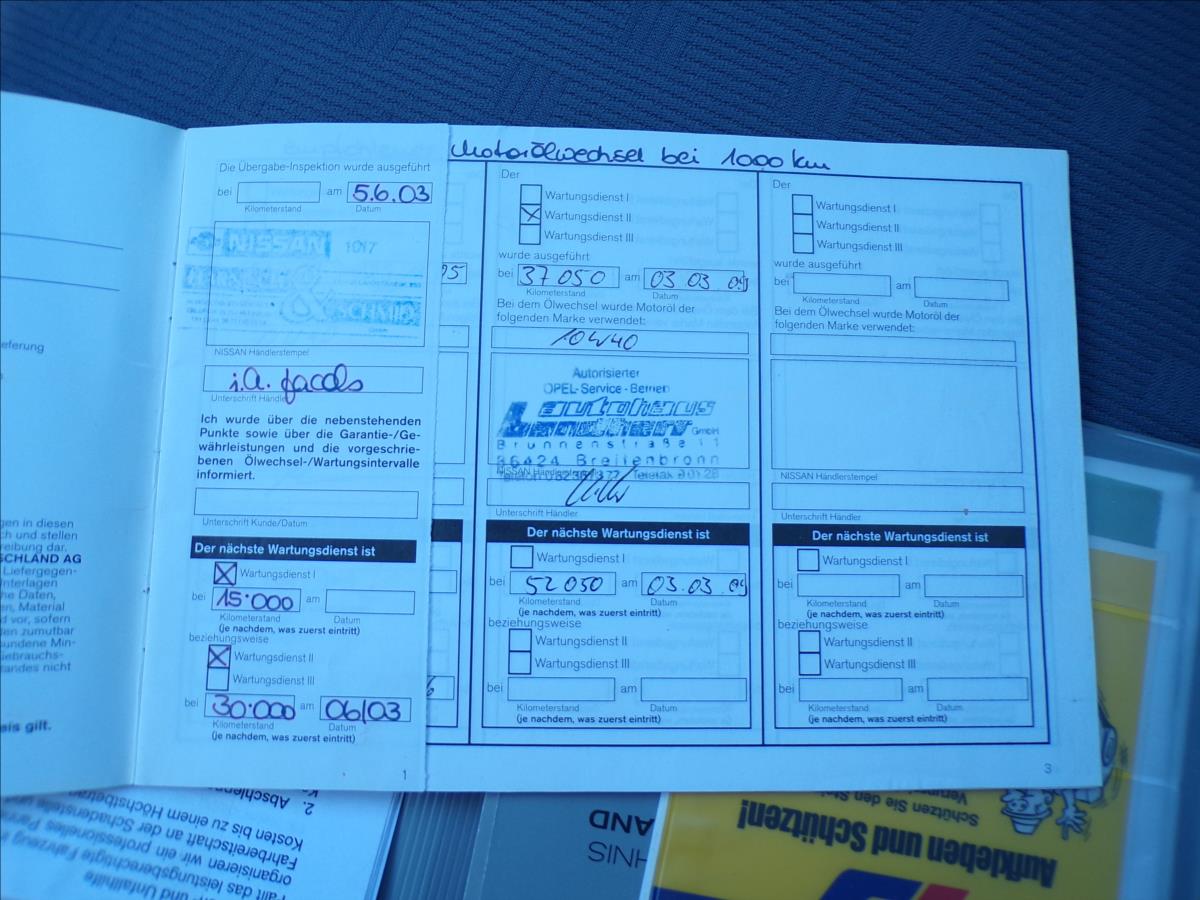 Motorölwechsel bei 1000 km
Die Übergabe-Inspektion wurde ausgeführt
bei am 5.6.03
Kilometerstand Datum
NISSAN 1017
& SCHMID
NISSAN Händlerstempel
i.A. Jacobs
Unterschrift Händler
Ich wurde über die nebenstehenden
Punkte sowie über die Garantie-/Ge-
währleistungen und die vorgeschrie-
benen Ölwechsel-/Wartungsintervalle
informiert.
Unterschrift Kunde/Datum
Der nächste Wartungsdienst ist
Wartungsdienst I
bei 15.000 am
Kilometerstand
(je nachdem, was zuerst eintritt)
beziehungsweise
Wartungsdienst II
Wartungsdienst III
bei 30.000 am 06/03
Kilometerstand Datum
(je nachdem, was zuerst eintritt)
1
05
6
Der
Wartungsdienst I
Wartungsdienst II
Wartungsdienst III
wurde ausgeführt
bei 37050 am 03 03
Kilometerstand Datum
Bei dem Ölwechsel wurde Motoröl der
folgenden Marke verwendet:
10W40
Autorisierter
OPEL-Service-
autohaus
GmbH
Brunnenstraße 11
86424 Breitenbronn
NISSAN Händlerstempel
Unterschrift Händler
Der nächste Wartungsdienst ist
Wartungsdienst I
bei 52050 am 03.03.
Kilometerstand Datum
(je nachdem, was zuerst eintritt)
beziehungsweise
Wartungsdienst II
Wartungsdienst III
bei am
Kilometerstand Datum
(je nachdem, was zuerst eintritt)
Der
Wartungsdienst I
Wartungsdienst II
Wartungsdienst III
wurde ausgeführt
bei am
Kilometerstand Datum
Bei dem Ölwechsel wurde Motoröl der
folgenden Marke verwendet:
NISSAN Händlerstempel
Unterschrift Händler
Der nächste Wartungsdienst ist
Wartungsdienst I
bei am
Kilometerstand Datum
(je nachdem, was zuerst eintritt)
beziehungsweise
Wartungsdienst II
Wartungsdienst III
bei am
Kilometerstand Datum
(je nachdem, was zuerst eintritt)
3
eferung
gen in diesen
ch und stellen
reibung dar.
SCHLAND AG
Liefergegen-
Unterlagen
he Daten,
en, Material
d vor, sofern
den zumutbar
bundene Min-
Gebrauchs-
tandes nicht
eis gilt.
2. Abschlep
Kosten bis zu einem Höchstbetra
Fahrbereitschaft an der Schadenstelle
organisieren wir ein professionelles Panne
Fällt das leistungsberechtigte Fahrzeug
und Unfallhilfe
AND
HNIS
Schützen Sie den
Aufkleben und Schützen!